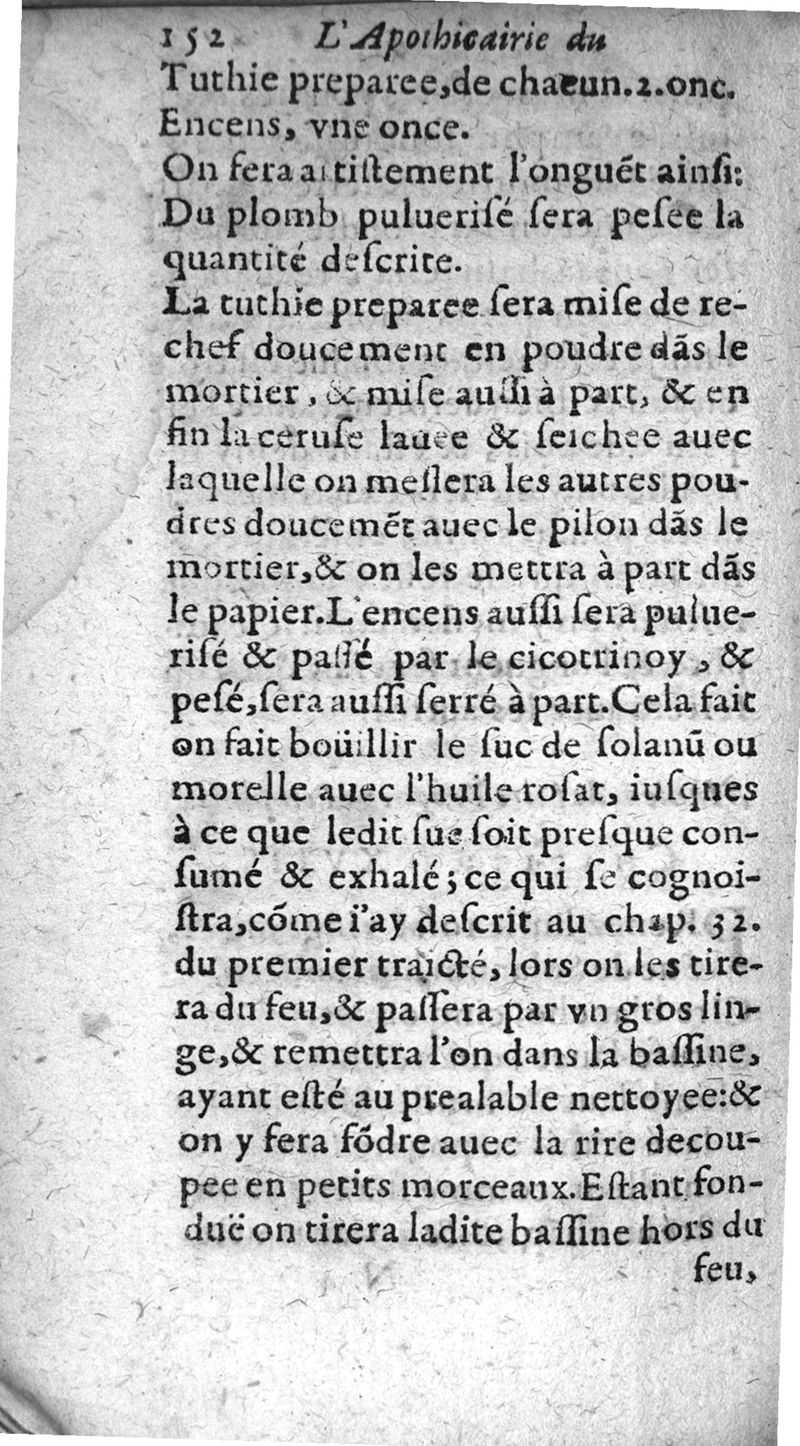 152 L'Apothicairie du
Tuthie preparee,de chacun.2.onc.
Encens, vne once.
On fera artiſtement l'onguẽt ainſi:
Du plomb pulueriſé ſera peſee la
quantité deſcrite.
La tuthie preparee ſera miſe de re-
chef doucement en poudre dãs le
mortier, & miſe auſſi à part, & en
fin la ceruſe lauee & ſeichee auec
laquelle on meſlera les autres pou-
dres doucemẽt auec le pilon dãs le
mortier,& on les mettra à part dãs
le papier.L'encens auſſi ſera pulue-
riſé & paſſé par le cicotrinoy, &
peſé,ſera auſſi ſerré à part.Cela fait
on fait boüillir le ſuc de ſolanũ ou
morelle auec l'huile roſat, iuſques
à ce que ledit ſuc ſoit preſque con-
ſumé & exhalé; ce qui ſe cognoi-
ſtra,cõme i'ay deſcrit au chap. 32.
du premier traicté, lors on les tire-
ra du feu,& paſſera par vn gros lin-
ge,& remettra l'on dans la baſſine,
ayant eſté au prealable nettoyee:&
on y fera fõdre auec la rire decou-
pee en petits morceaux.Eſtant fon-
duë on tirera ladite baſſine hors du
feu,